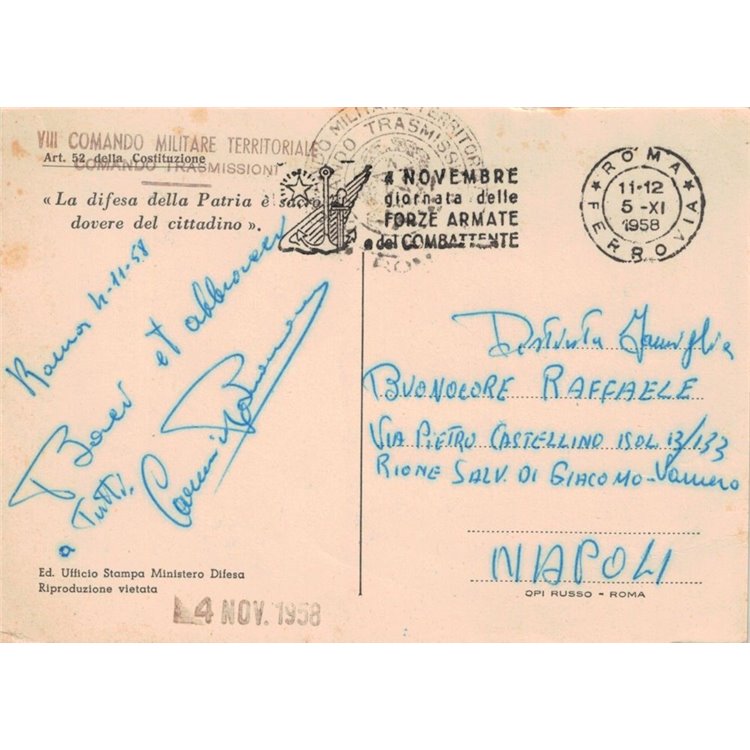 VIII COMANDO MILITARE TERRITORIALE
COMANDO TRASMISSIONI
Art. 52 della Costituzione
« La difesa della Patria è sacro
dovere del cittadino ».
Roma 4-11-58
Baci et abbracci
a tutti.
Ed. Ufficio Stampa Ministero Difesa
Riproduzione vietata
4 NOV. 1958
MILITARE TERRITOR
TRASMISSI
4 NOVEMBRE
giornata delle
FORZE ARMATE
e del COMBATTENTE
ROMA
11-12
5-XI
1958
FERROVIA
Distinta Famiglia
BUONOCORE RAFFAELE
VIA PIETRO CASTELLINO ISOL 13/133
RIONE SALV. DI GIACOMO - Vomero
NAPOLI
OPI RUSSO - ROMA